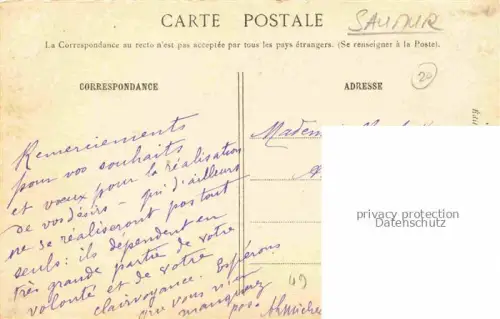 CARTE POSTALE
SAUMUR
La Correspondance au recto n'est pas acceptée par tous les pays étrangers. (Se renseigner à la Poste).
20
CORRESPONDANCE
ADRESSE
Remerciements
pour vos souhaits
et vœux pour la réalisation
de vos désirs — qui d'ailleurs
ne se réaliseront pas tout
seuls : ils dépendent en
très grande partie de votre
volonté et de votre
clairvoyance. Espérons
que vous n'en
manquerez
pas.
49
privacy protection
Datenschutz